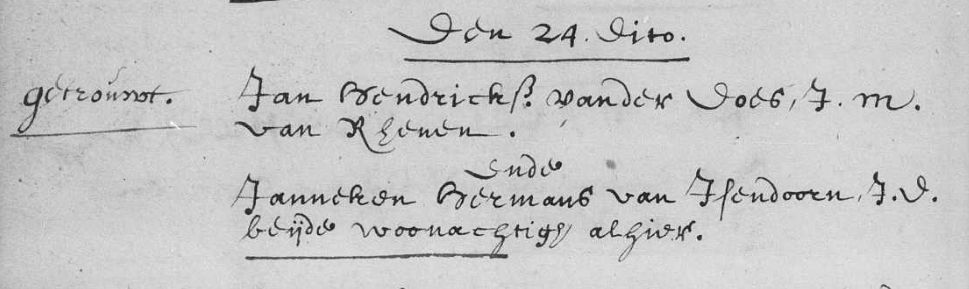 Den 24. Dito.
getrouwt.
Jan Hendricks. vander Does, J. m.
van Rhenen.
Ende
Janneken Hermans van Isendoorn, J. D.
beijde woonachtigh alhier.